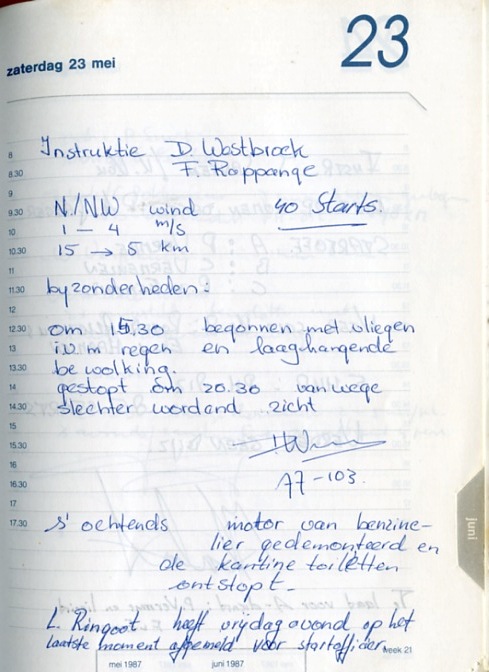 23
zaterdag 23 mei
8 Instruktie D. Westbroek
8.30 F. Rappange
9
9.30 N./NW wind 40 Starts.
10 1 - 4 m/s
10.30 15 → 5 km
11
11.30 byzonderheden:
12
12.30 om 15.30 begonnen met vliegen
13 i.v.m regen en laaghangende
13.30 bewolking.
14 gestopt om 20.30 vanwege
14.30 slechter wordand zicht
15
15.30
16
16.30 A7-103.
17
17.30 s' ochtends motor van benzine-
lier gedemonteerd en
de kantine toiletten
ontstopt.
L. Ringoot heeft vrydagavond op het
laatste moment afgemeld voor startofficier.
week 21
mei 1987 juni 1987
juni